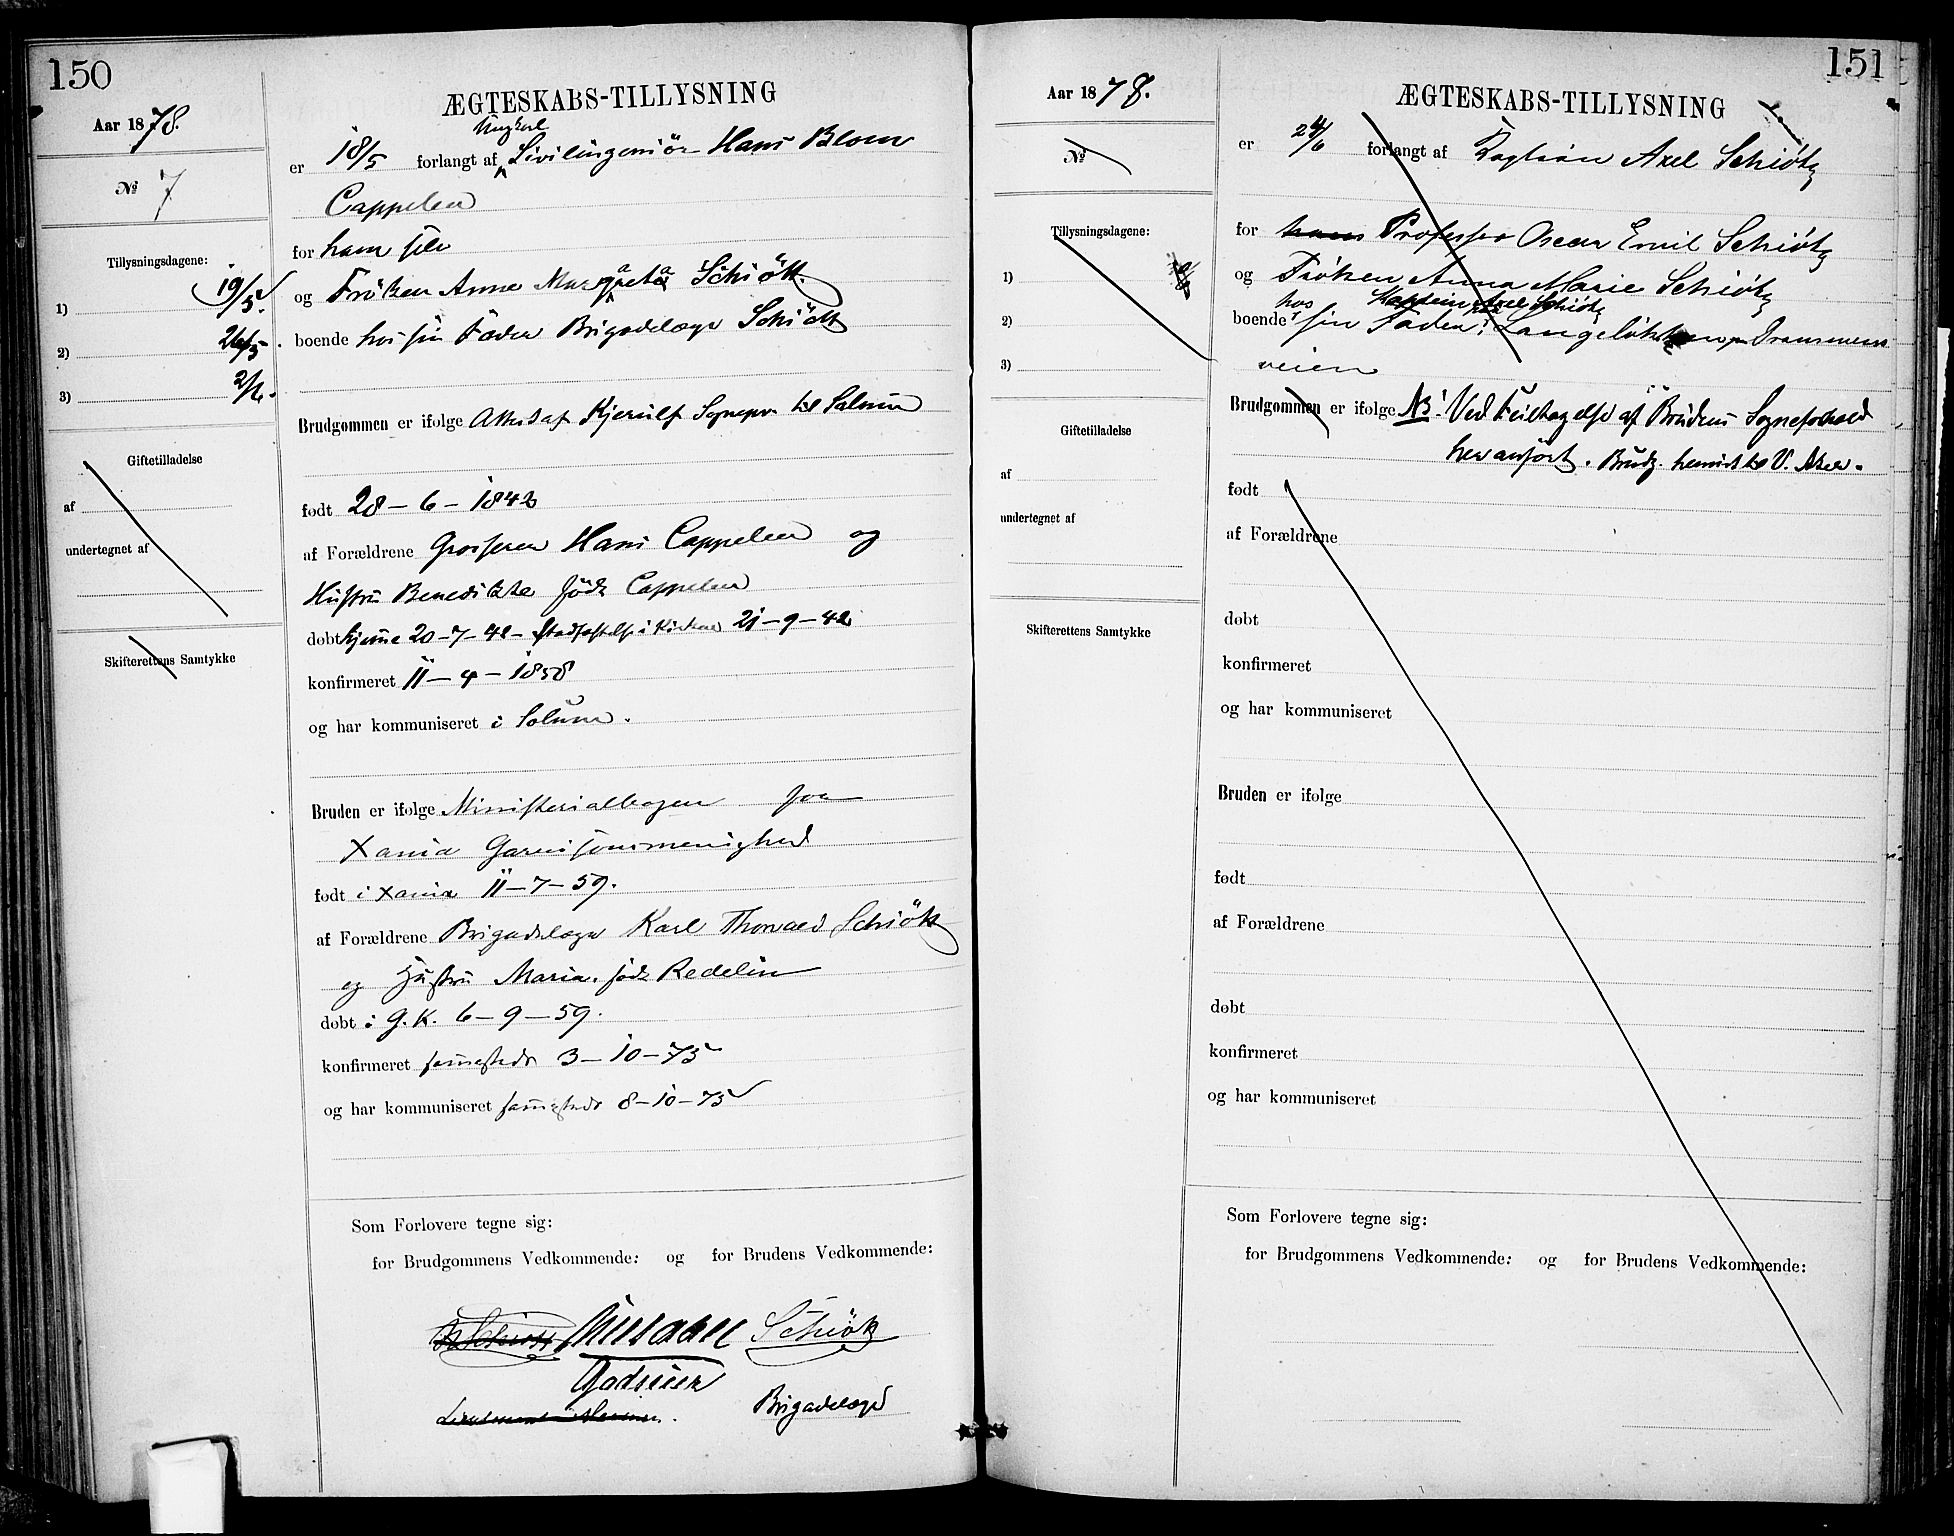 150
Aar 1878.
№ 7
Tillysningsdagene:
1) 19/5.
2) 26/5.
3) 2/6.
Giftetilladelse
af
undertegnet af
Skifterettens Samtykke
ÆGTESKABS-TILLYSNING
Ungkarl
er 18/5 forlangt af Civilingeniör Hans Blom
Cappelen
for ham selv
og Fröken Anne Margareta Schiötz
boende hos sin Fader Brigadelæge Schiötz
Brudgommen er ifølge Attest af Kjerulf Sognepr. til Solum
født 28-6-1842
af Forældrene Grosserer Hans Cappelen og
Hustru Benedikte född Cappelen
døbt hjemme 20-7-42 - Stadfæstelse i Kirken 21-9-42
konfirmeret 11-4-1858
og har kommuniseret i Solum.
Bruden er ifølge Ministerialbogen for
Xania Garnisonsmenighed
født i Xania 11-7-59.
af Forældrene Brigadelæge Karl Thorvald Schiötz
og Hustru Maria född Redelin
døbt i G.K. 6-9-59.
konfirmeret samesteds 3-10-75
og har kommuniseret samesteds 8-10-75
Som Forlovere tegne sig:
for Brudgommens Vedkommende: og for Brudens Vedkommende:
Schiötz
Brigadelæge
151
Aar 1878.
№
Tillysningsdagene:
1)
2)
3)
Giftetilladelse
af
undertegnet af
Skifterettens Samtykke
ÆGTESKABS-TILLYSNING
er 24/6 forlangt af Kaptein Axel Schiøtz
for hans Professor Oscar Emil Schiøtz
og Frøken Anna Marie Schiøtz
hos Kaptein Axel Schiøtz
boende sin Fader, Langeløkken paa Drammens
veien
Brudgommen er ifølge NB! Ved Feiltagelse af Brudens Sogneforhold
her anført. Brudg. henvist til V. Aker.
født
af Forældrene
døbt
konfirmeret
og har kommuniseret
Bruden er ifølge
født
af Forældrene
døbt
konfirmeret
og har kommuniseret
Som Forlovere tegne sig:
for Brudgommens Vedkommende: og for Brudens Vedkommende: